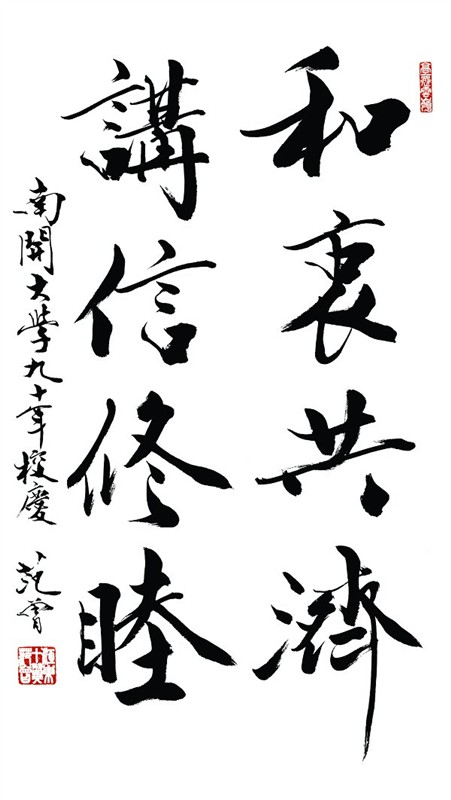 和衷共濟
講信修睦
南開大學九十年校慶 范曾